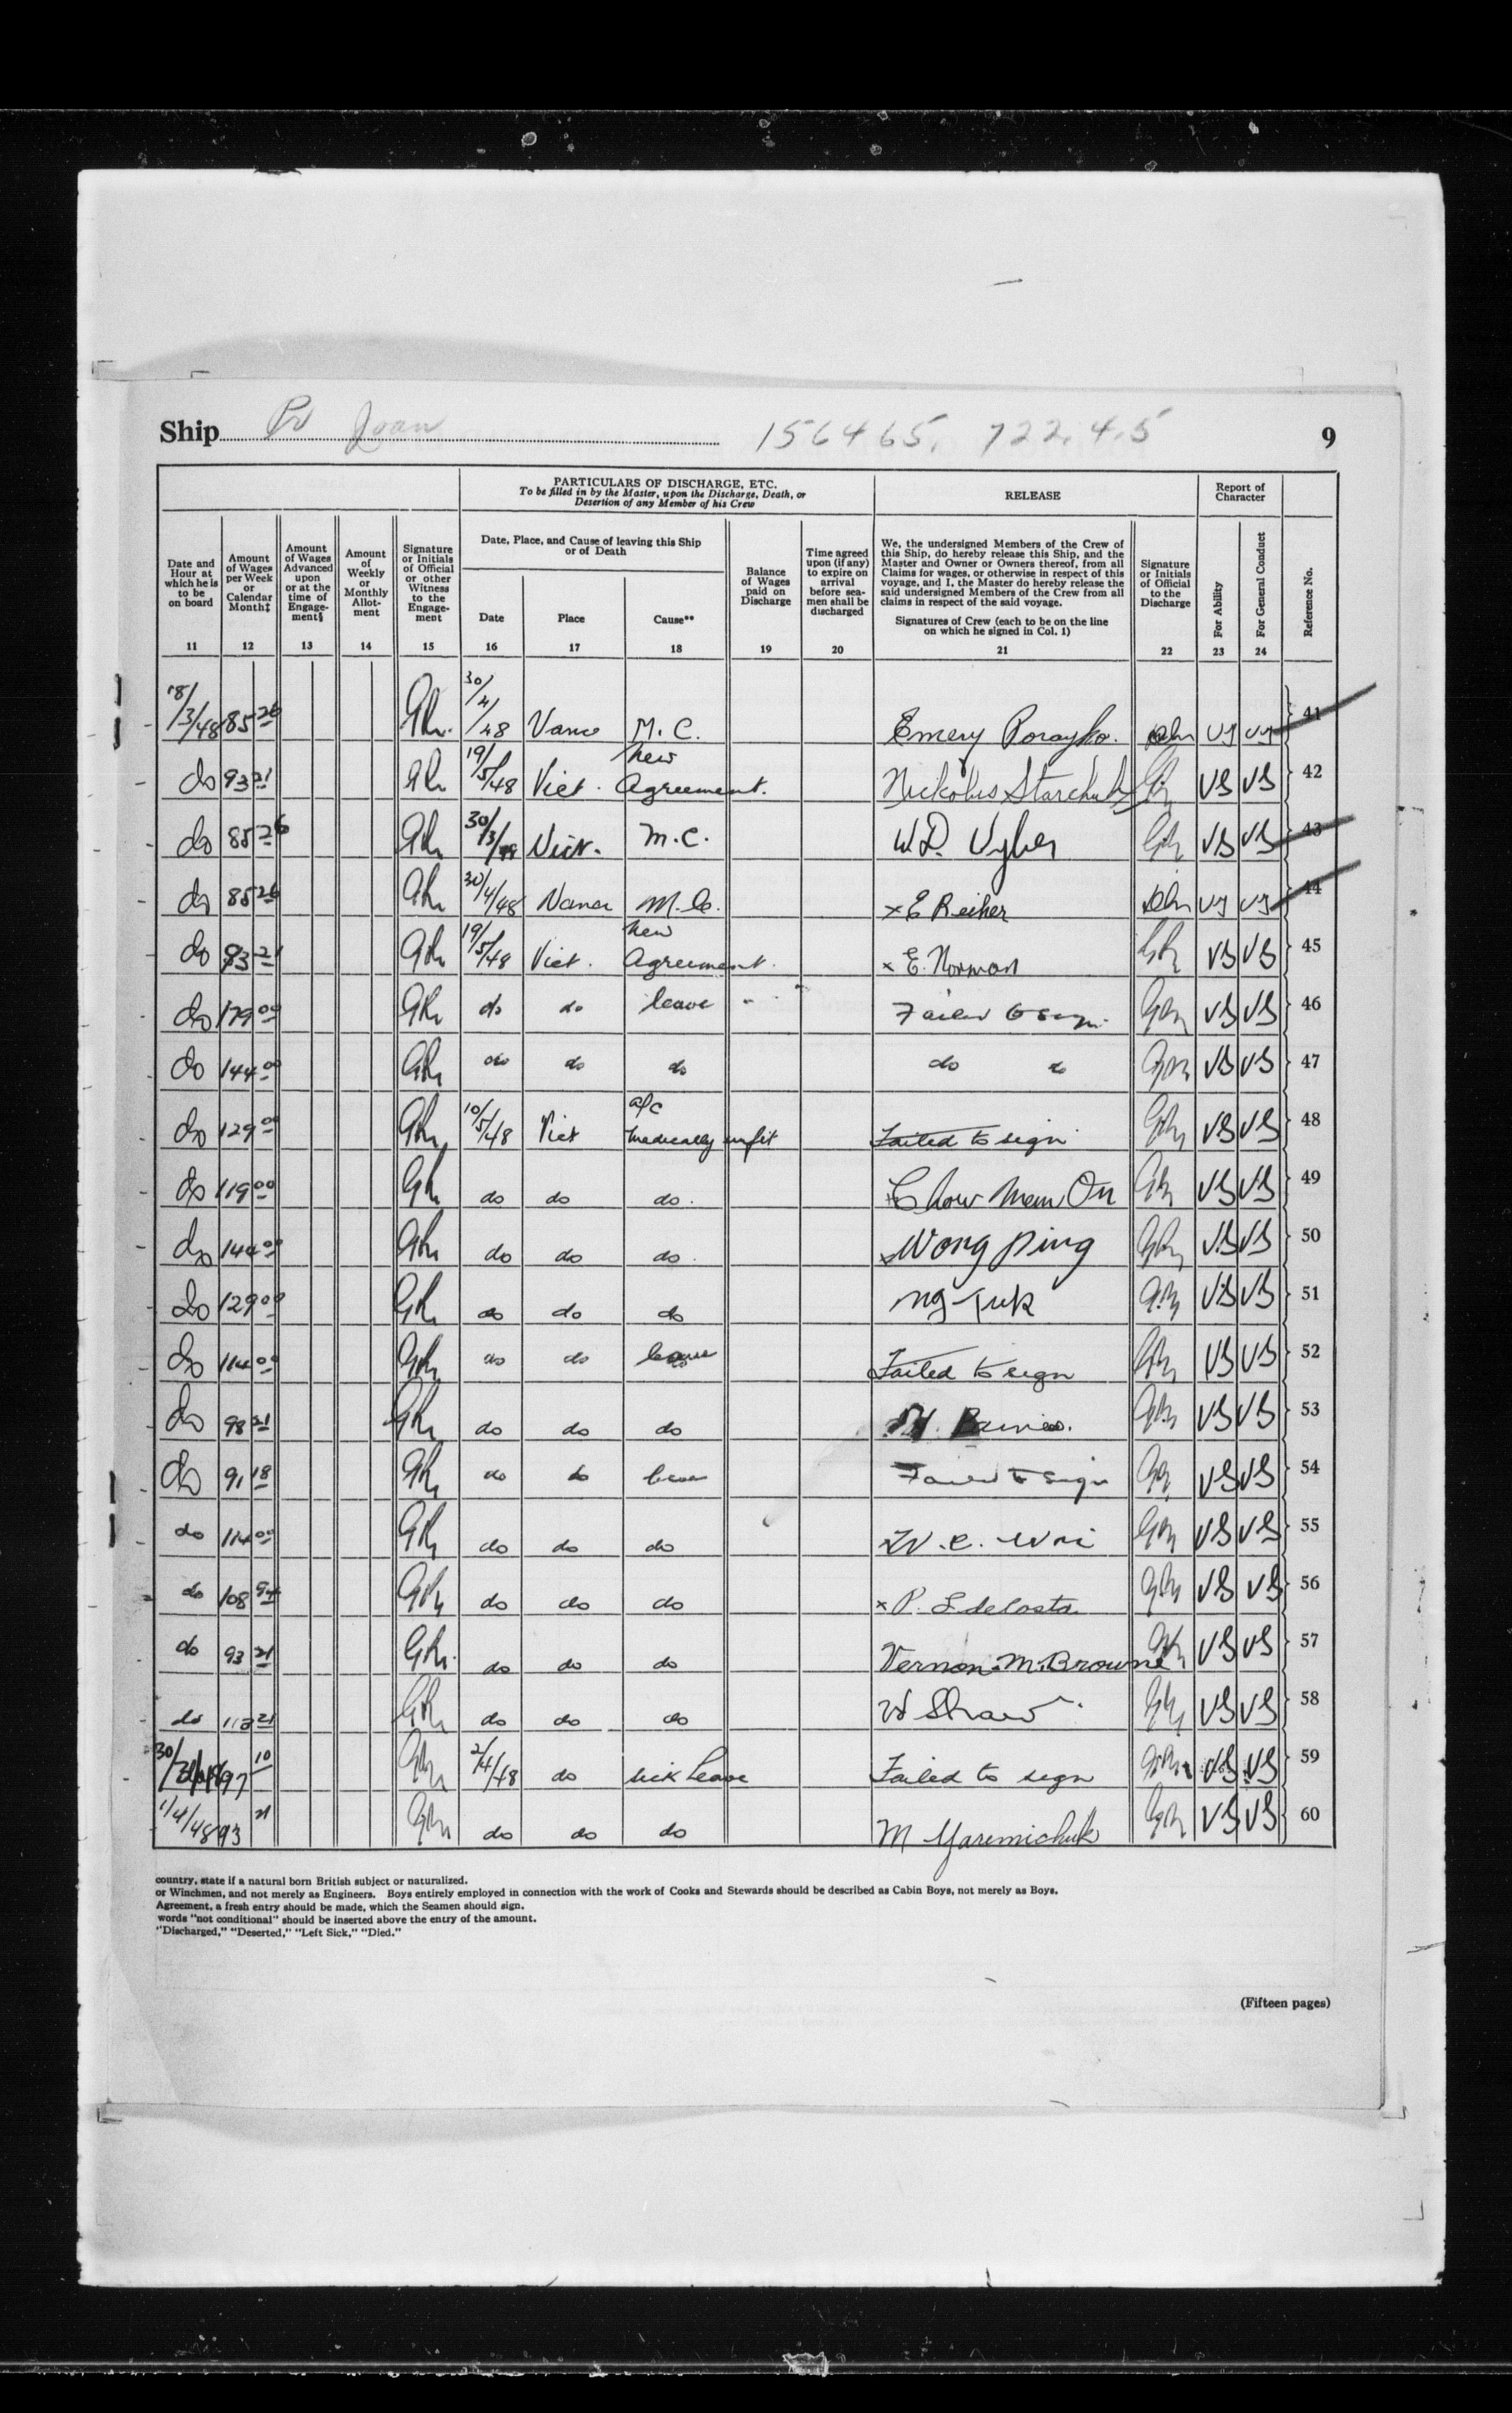 Ship Pr Joan 156465. 722.4.5 9
PARTICULARS OF DISCHARGE, ETC.
To be filled in by the Master, upon the Discharge, Death, or
Desertion of any Member of his Crew
RELEASE
Report of
Character
Date and
Hour at
which he is
to be
on board
Amount
of Wages
per Week
or
Calendar
Month‡
Amount
of Wages
Advanced
upon
or at the
time of
Engage-
ment§
Amount
of
Weekly
or
Monthly
Allot-
ment
Signature
or Initials
of Official
or other
Witness
to the
Engage-
ment
Date, Place, and Cause of leaving this Ship
or of Death
Date
Place
Cause**
Balance
of Wages
paid on
Discharge
Time agreed
upon (if any)
to expire on
arrival
before sea-
men shall be
discharged
We, the undersigned Members of the Crew of
this Ship, do hereby release this Ship, and the
Master and Owner or Owners thereof, from all
Claims for wages, or otherwise in respect of this
voyage, and I, the Master do hereby release the
said undersigned Members of the Crew from all
claims in respect of the said voyage.
Signatures of Crew (each to be on the line
on which he signed in Col. 1)
Signature
or Initials
of Official
to the
Discharge
For Ability
For General Conduct
Reference No.
11 12 13 14 15 16 17 18 19 20 21 22 23 24
18/3/48 85 26 30/4/48 Vanc M.C. Emery Porayko. 41
do 93 21 19/5/48 Vict. new Agreement. Nickolus Starchuk VG VG 42
do 85 26 30/3/48 Vict. M.C. W.D. VG VG 43
do 85 26 30/4/48 M.C. x E Reiher 44
do 93 21 19/5/48 Vict. new Agreement. x E. Norman VG VG 45
do 179 00 do do leave Failed to sign. VG VG 46
do 144 00 do do do do do VG VG 47
do 129 00 10/5/48 Vict a/c medically unfit Failed to sign VG VG 48
do 119 00 do do do. Chow Mem On VG VG 49
do 144 00 do do do. x Wong Ping VG VG 50
do 129 00 do do do ng VG VG 51
do 114 00 do do leave Failed to sign VG VG 52
do 98 21 do do do VG VG 53
do 91 18 do do leave Failed to sign VG VG 54
do 114 00 do do do VG VG 55
do 108 94 do do do x P. VG VG 56
do 93 21 do do do Vernon. M. Browne VG VG 57
do 113 21 do do do W Shaw VG VG 58
97 10 2/4/48 do sick Leave Failed to sign VG VG 59
1/4/48 93 21 do do do M Yaremichuk VG VG 60
country, state if a natural born British subject or naturalized.
or Winchmen, and not merely as Engineers. Boys entirely employed in connection with the work of Cooks and Stewards should be described as Cabin Boys, not merely as Boys.
Agreement, a fresh entry should be made, which the Seamen should sign.
words "not conditional" should be inserted above the entry of the amount.
"Discharged," "Deserted," "Left Sick," "Died."
(Fifteen pages)